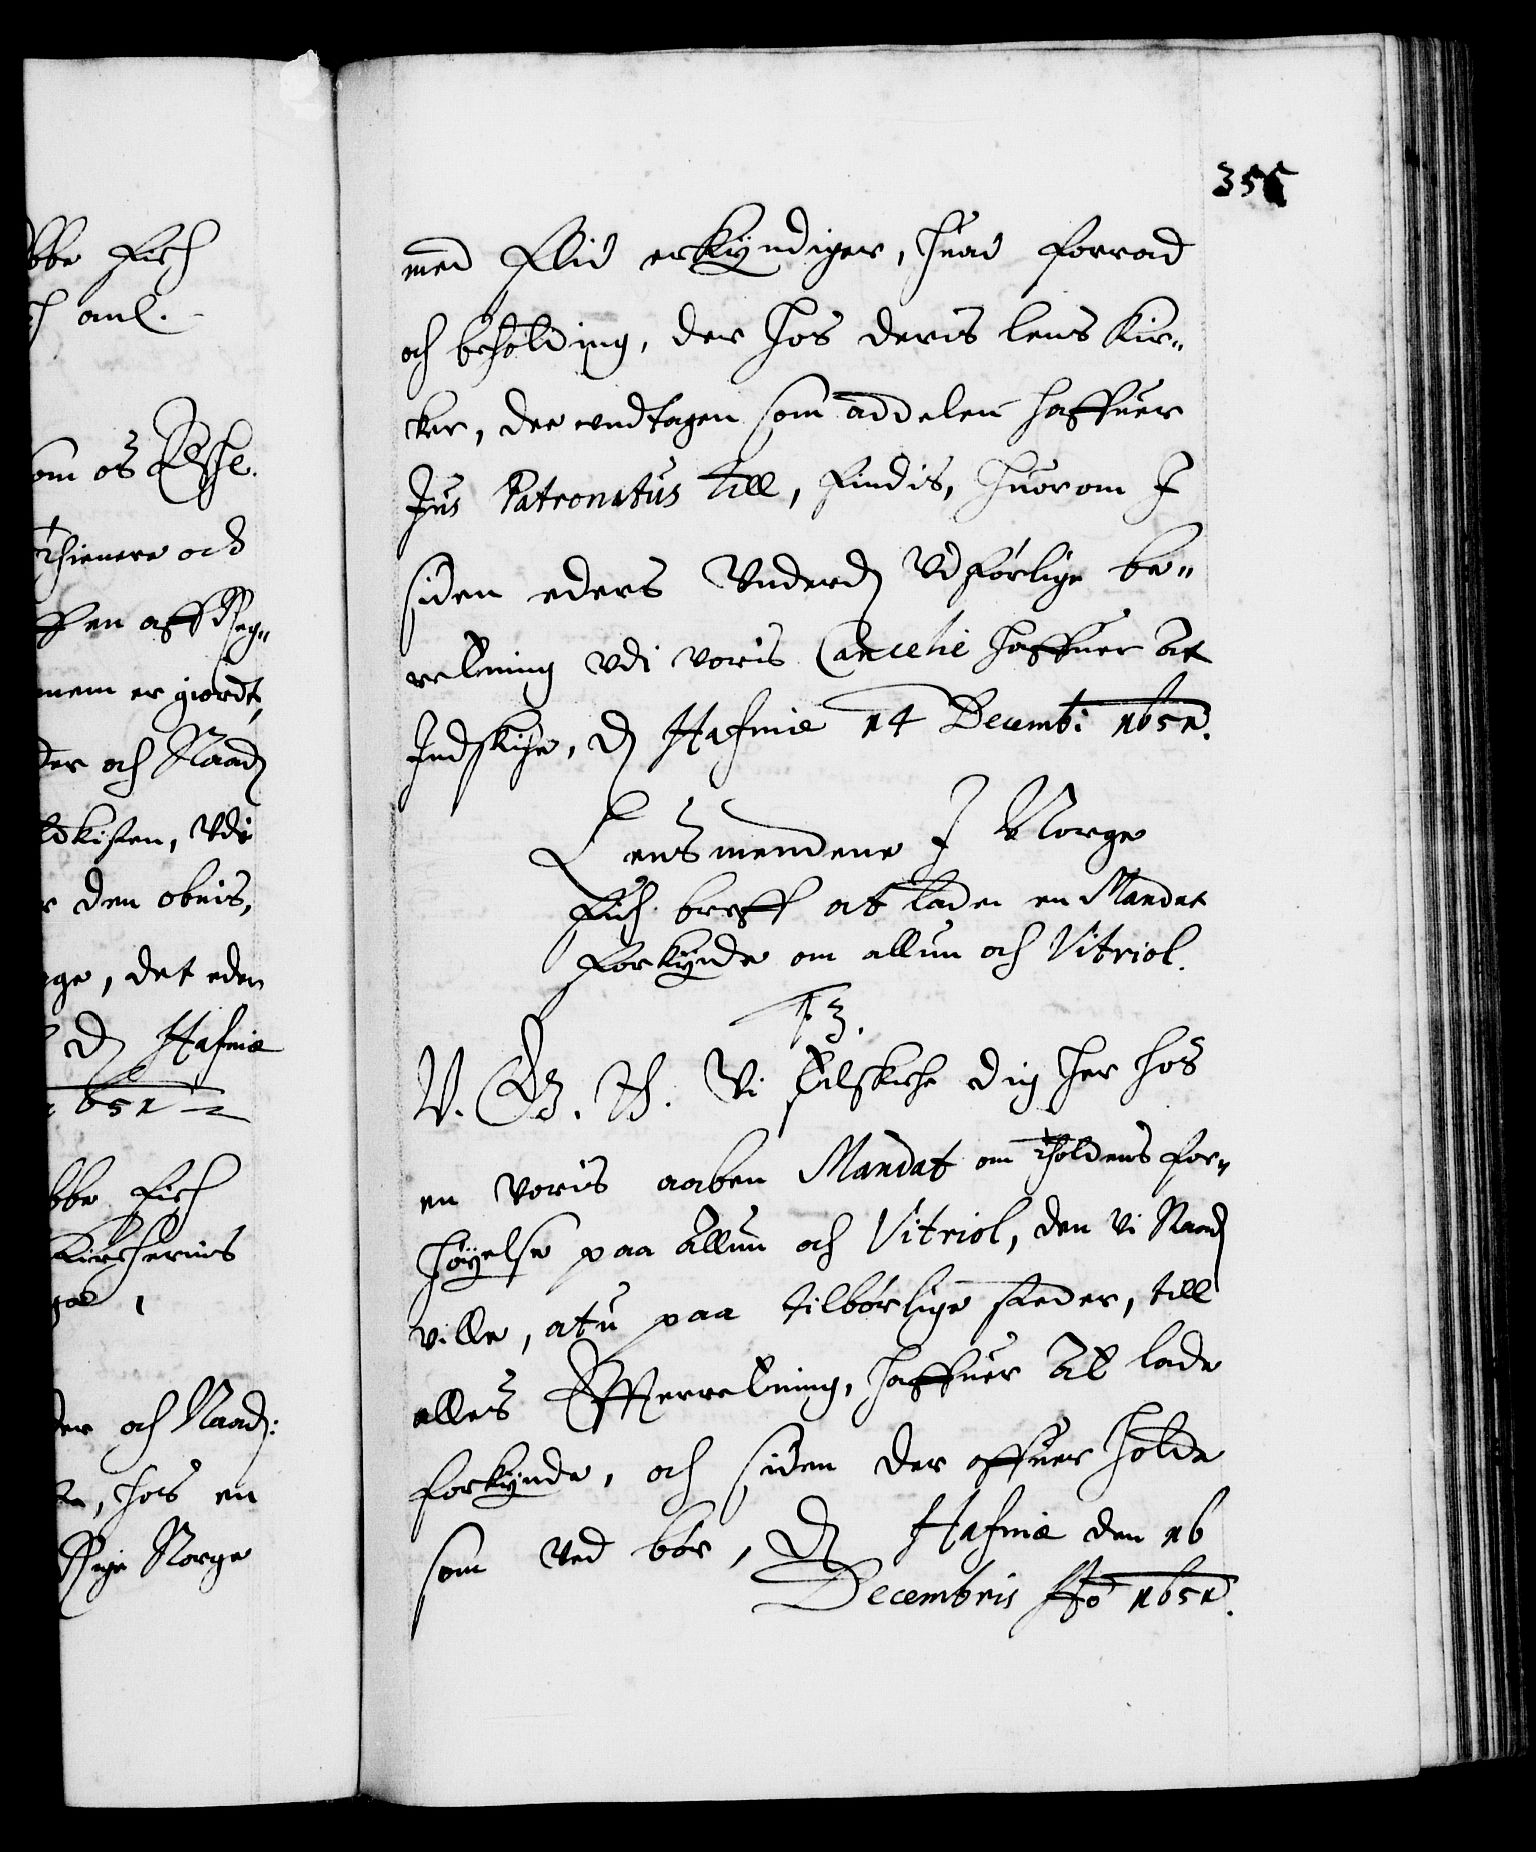 355
med Flid erkyndiger, huad forrad
och beholding, der hos deris lens Kir„
ker, der undtagen som addelen haffuer
Jus Patronatus till, findis, huorom I
siden eders Underd: Udførlige be„
retning udi voris Cancelie haffuer at
Indskicke, D. Hafniæ 14 Decemb: 1651.
Lensmendene I Norge
Fich breff at lade en Mandat
forkynde om allun och Vitriol.
F. 3.
V. G. T. Vi tilskicke dig her hos
en voris aaben Mandat om tholdens for„
høyelse paa Allun och Vitriol, den Vi Naad:
ville, at du paa tilbørlige steder, till
alles Effterretning, haffuer At lade
forkynde, och siden der offuer holde
som ved bør, D. Hafniæ den 16
Decembris Ao 1651.
bbe Fich
ch anl.
om os
Thienere och
en aff
nem er giordt,
der och Naad:
ldkisten, Udi
r den obnis,
ge, det eder
D. Hafniæ
1651
bbe Fich
der och Naad:
hos en
Rige Norge